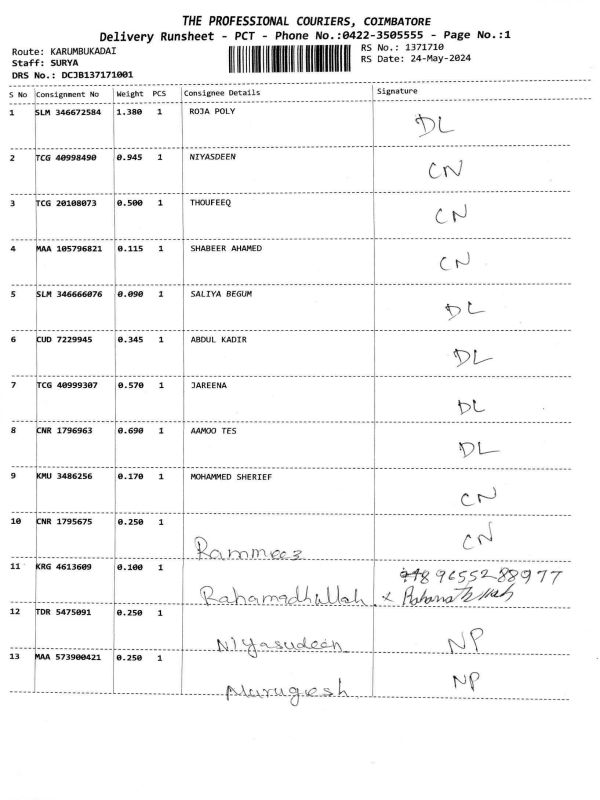 THE PROFESSIONAL COURIERS, COIMBATORE
Delivery Runsheet - PCT - Phone No.:0422-3505555 - Page No.:1
Route: KARUMBUKADAI
Staff: SURYA
DRS No.: DCJB137171001
RS No.: 1371710
RS Date: 24-May-2024
S No Consignment No Weight PCS Consignee Details Signature
1 SLM 346672584 1.380 1 ROJA POLY DL
2 TCG 40998490 0.945 1 NIYASDEEN CN
3 TCG 20108073 0.500 1 THOUFEEQ CN
4 MAA 105796821 0.115 1 SHABEER AHAMED CN
5 SLM 346666076 0.090 1 SALIYA BEGUM DL
6 CUD 7229945 0.345 1 ABDUL KADIR DL
7 TCG 40999307 0.570 1 JAREENA DL
8 CNR 1796963 0.690 1 AAMOO TES DL
9 KMU 3486256 0.170 1 MOHAMMED SHERIEF CN
10 CNR 1795675 0.250 1 Rammeez CN
11 KRG 4613609 0.100 1 Rahamadhullah 9655288977
12 TDR 5475091 0.250 1 Niyasudeen NP
13 MAA 573900421 0.250 1 Murugesh NP